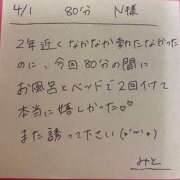 4/1 80分 N様
2年近くなかなか勃たなかった
のに、今回80分の間に
お風呂とベッドで2回イけて
本当に嬉しかった♡
また誘ってください(o^^o)
みと